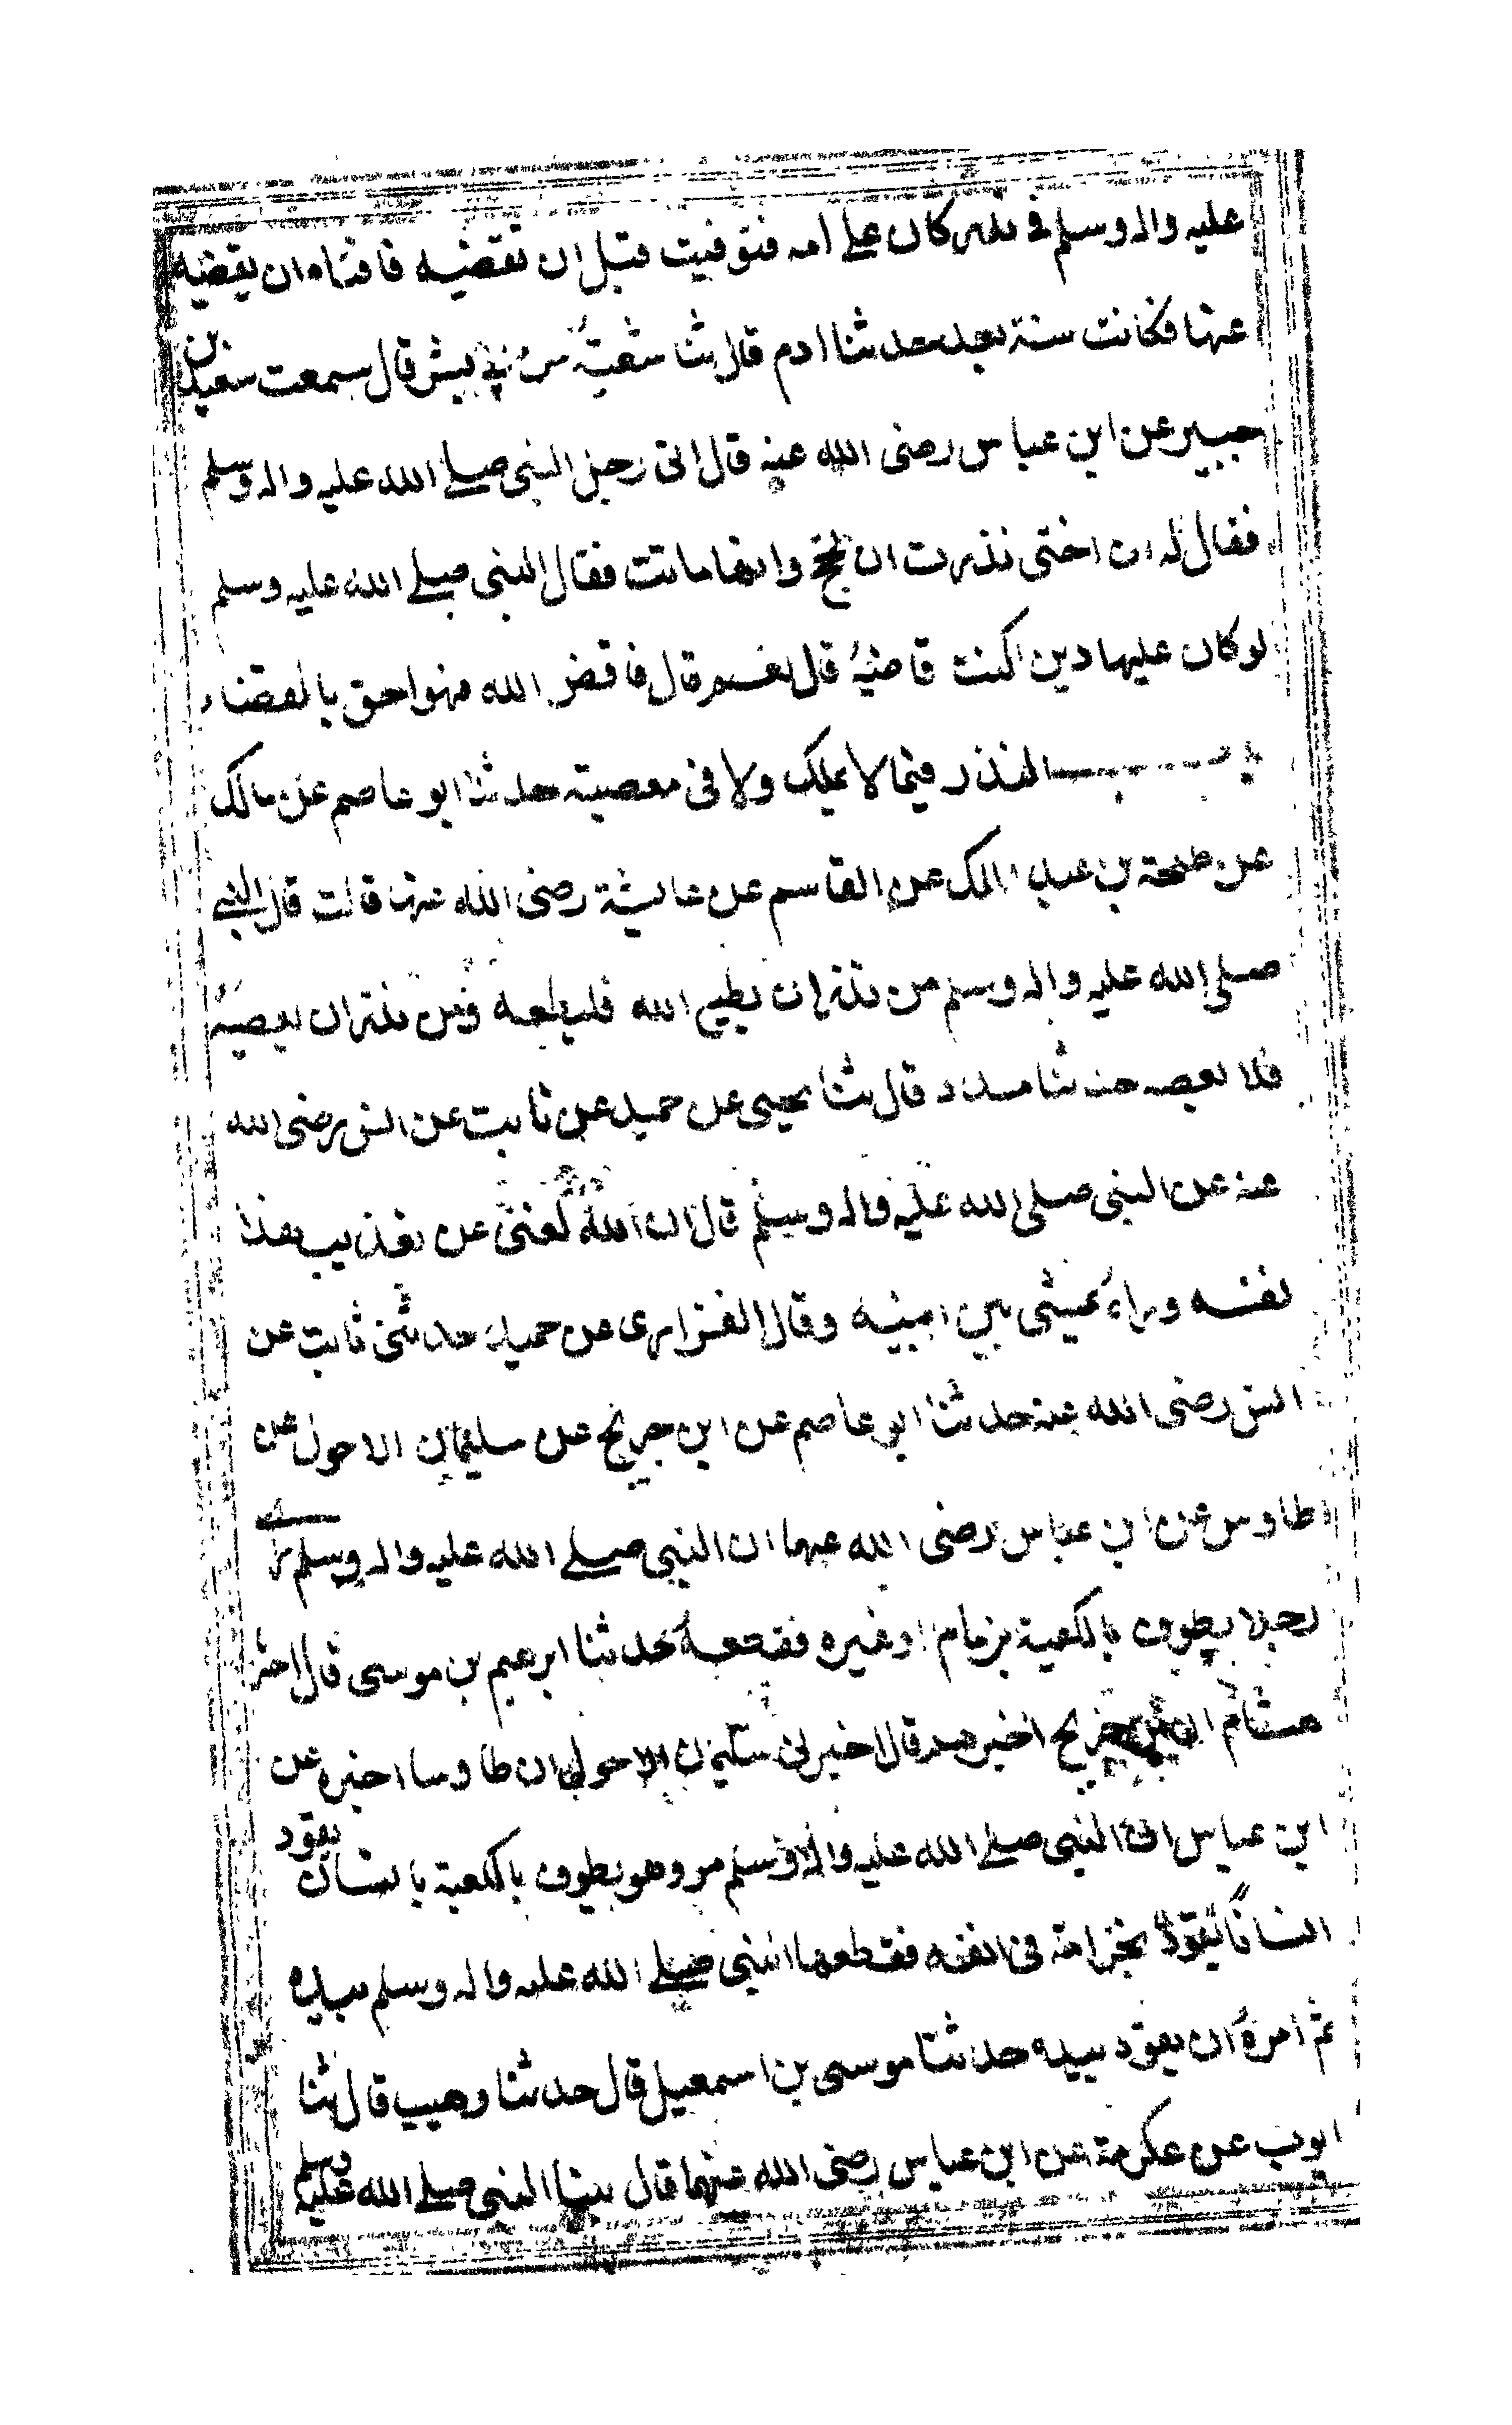 عليه واله وسلم في نذر كان علے امه فتوفيت قبل ان تقضيه فافتاه ان يقضيه
عنها فكانت سنة بعد حدثنا ادم قال ثنا شعبة عن ابي بشر قال سمعت سعيد بن
جبير عن ابن عباس رضى الله عنه قال اتى رجل النبي صلے الله عليه واله وسلم
فقال له ان اختى نذرت ان تحج وانها ماتت فقال النبي صلے الله عليه وسلم
لو كان عليها دين اكنت قاضيه قال نعم قال فاقض الله فهو احق بالقضاء
باب النذر فيما لا يملك ولا فى معصية حدثنا ابو عاصم عن مالك
عن طلحة بن عبد الملك عن القاسم عن عايشة رضى الله عنها قالت قال النبي
صلى الله عليه واله وسلم من نذر ان يطيع الله فليطعه ومن نذر ان يعصيه
فلا يعصه حدثنا مسدد قال ثنا يحيى عن حميد عن ثابت عن انس رضى الله
عنه عن النبي صلى الله عليه واله وسلم قال ان الله لغنى عن تعذيب هذا
نفسه وراه يمشى بين ابنيه وقال الفزارى عن حميد حدثنى ثابت عن
انس رضى الله عنه حدثنا ابو عاصم عن ابن جريج عن سليمان الاحول عن
طاوس عن ابن عباس رضى الله عنهما ان النبي صلے الله عليه واله وسلم راى
رجلا يطوف بالكعبة بزمام او غيره فقطعه حدثنا ابرهيم بن موسى قال اخبرنا
هشام ان ابن جريج اخبرهم قال اخبرنى سليمن الاحول ان طاوسا اخبره عن
ابن عباس ان النبي صلے الله عليه واله وسلم مر وهو يطوف بالكعبة بانسان يقود
انسانا يقود بخزامة فى انفه فقطعها النبي صلے الله عليه واله وسلم بيده
ثم امره ان يقود بيده حدثنا موسى بن اسمعيل قال حدثنا وهيب قال ثنا
ايوب عن عكرمة عن ابن عباس رضى الله عنهما قال بينا النبي صلے الله عليه وسلم